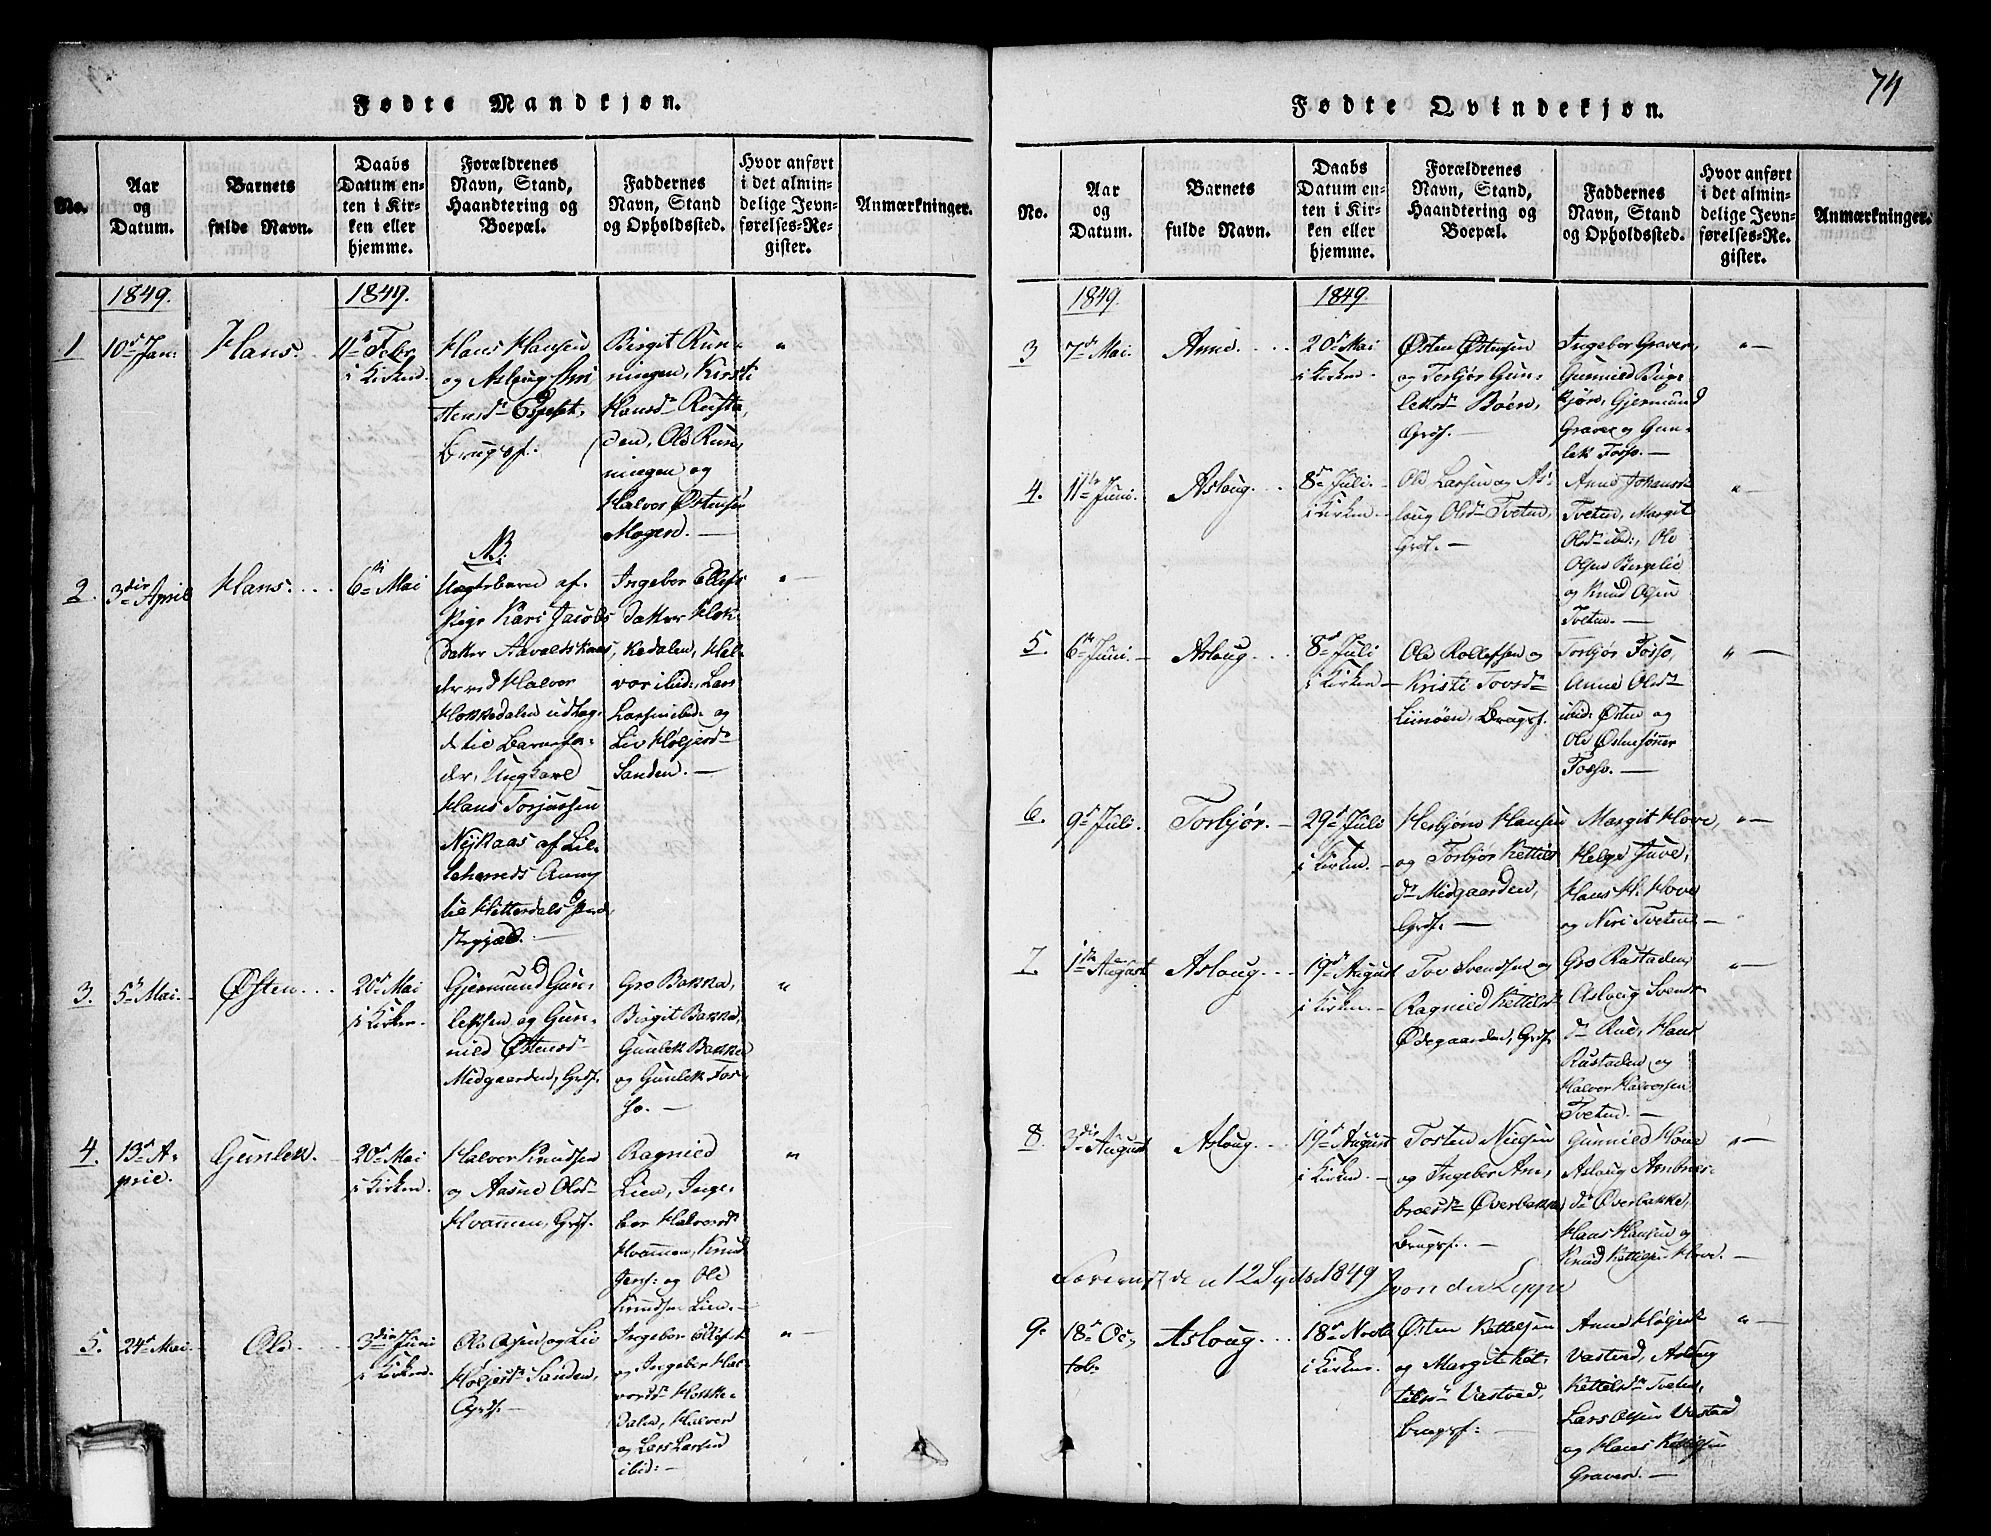 Fødte Mandkjøn.
No.
Aar
og
Datum.
Barnets
fulde Navn.
Daabs
Datum en-
ten i Kir-
ken eller
hjemme.
Forældrenes
Navn, Stand,
Haandtering og
Boepæl.
Faddernes
Navn, Stand
og Opholdssted.
Hvor anført
i det almin-
delige Jevn-
førelses-Re-
gister.
Anmærkninger.
1849.
1849.
1
10de Jan.
Hans.
11te Febr.
i Kirken.
Hans Hansen
og Aslaug Chri
stensd.
Brugsf:
Birgit Run-
ningen, Kirsti
Hansdr Rusta
den, Ole Run-
ningen og
Halvor Østensen
Mogen. —
"
2.
3die April
Hans.
6te Mai
NB:
Uægtebarn af
Pige Kari Jacobs
datter Aavaldskaas,
der ved Halvor
Hokkedalen udlag-
de til Barnefa-
der, Ungkarl
Hans Torjussen
Nejkaas af Lil-
leherreds Annex
til Hitterdals Præ-
stegjæld. —
Ingebor Ellefs
datter Hok
kedalen, Hal-
vor ibid:, Lars
Larsen ibid: og
Liv Høljesdr
Sanden. —
" —
3.
5te Mai.
Østen.
20de Mai
i Kirken.
Gjermund Gun-
leksen og Gun-
nild Østensd
Midgaarden, Grdf.
Gro Bakka,
Birgit Bakka,
Gunlek Bakka
og Gunlek Fos-
so. —
"
4.
13de A-
pril.
Gunlek.
20de Mai
i Kirken.
Halvor Knudsen
og Aasne Olsdr
Hvammen, Grdf.
Ragnild
Lien, Inge-
bor Halvorsdr
Hvammen, Knud
Jens: og Ole
Knudsen Lien. —
"
5.
24de Mai.
Ole
3die Juni
i Kirken.
Ole Olsen og Liv
Høljesdr Sanden,
Grdf. —
Ingebor Ellefsdr
og Ingebor Hal
vorsdr Hokke-
dalen, Halvor
og Lars Larsen
ibid: —
" —
74
Fødte Qvindekjøn.
No.
Aar
og
Datum.
Barnets
fulde Navn.
Daabs
Datum en-
ten i Kir-
ken eller
hjemme.
Forældrenes
Navn, Stand,
Haandtering og
Boepæl.
Faddernes
Navn, Stand
og Opholdssted.
Hvor anført
i det almin-
delige Jevn-
førelses-Re-
gister.
Anmærkninger.
1849.
1849.
3
7de Mai.
Anne.
20de Mai
i Kirken.
Østen Østensen
og Torbjør Gun-
leksdr Böen,
Grdf. —
Ingebor Graver,
Gunnild Buge-
kjøn, Gjermund
Graver og Gun-
lek Fosso. —
" —
4.
11te Juni.
Aslaug.
8de Juli.
i Kirken.
Ole Larsen og As-
laug Olsdr Tveten,
Grdf. —
Anne Johansdr
Tveten, Margit
Olsdr ibid:, Ole
Olsen Bergelie
og Knud Olsen
Tveten. —
" —
5.
6te Juni. —
Aslaug.
8de Juli
i Kirken —
Ole Rollefsen og
Kristi Tovsdr
Liinöen, Brugsf.
Torbjør Fosso,
Anne Olsdr
ibid: Østen og
Ole Østensönner
Fosso. —
" —
6.
9de Juli.
Torbjør. —
29de Juli
i Kirken. —
Herbjørn Hansen
og Torbjør Kettils
dr Midgaarden,
Grdf. —
Margit Hove,
Helge Juve,
Hans H. Hove
og Neri Tveten —
" —
7.
1te August
Aslaug.
19de August
i Kirken. —
Tov Svendsen og
Ragnild Kettilsdr
Ödegaarden, Grdf.
Gro Rustaden,
Aslaug Svends
dr Rue, Hans
Rustaden og
Halvor Halvorsen
Tveten. —
" —
8.
3die August
Aslaug.
19de August
i Kirken. —
Tosten Nielsen
og Ingebor Am-
broesdr Øverbakka
Brugsf. —
Gunnild Hove
Aslaug Ambroes-
dr Øverbakke,
Hans Hansen og
Knud Kettilsen Hove. —
" —
12 Septbr 1849 J von der Lippe
9.
18de Oc-
tob.
Aslaug.
18de Novbr
i Kirken.
Østen Kettelsen
og Margit Ket-
tilsdr Vastved,
Brugsf: —
Anne Høgjesdr
Vastved, Aslaug
Kettelsdr Tveten,
Lars Olsen Vastved
og Hans Kettilsen
Graver. —
" —